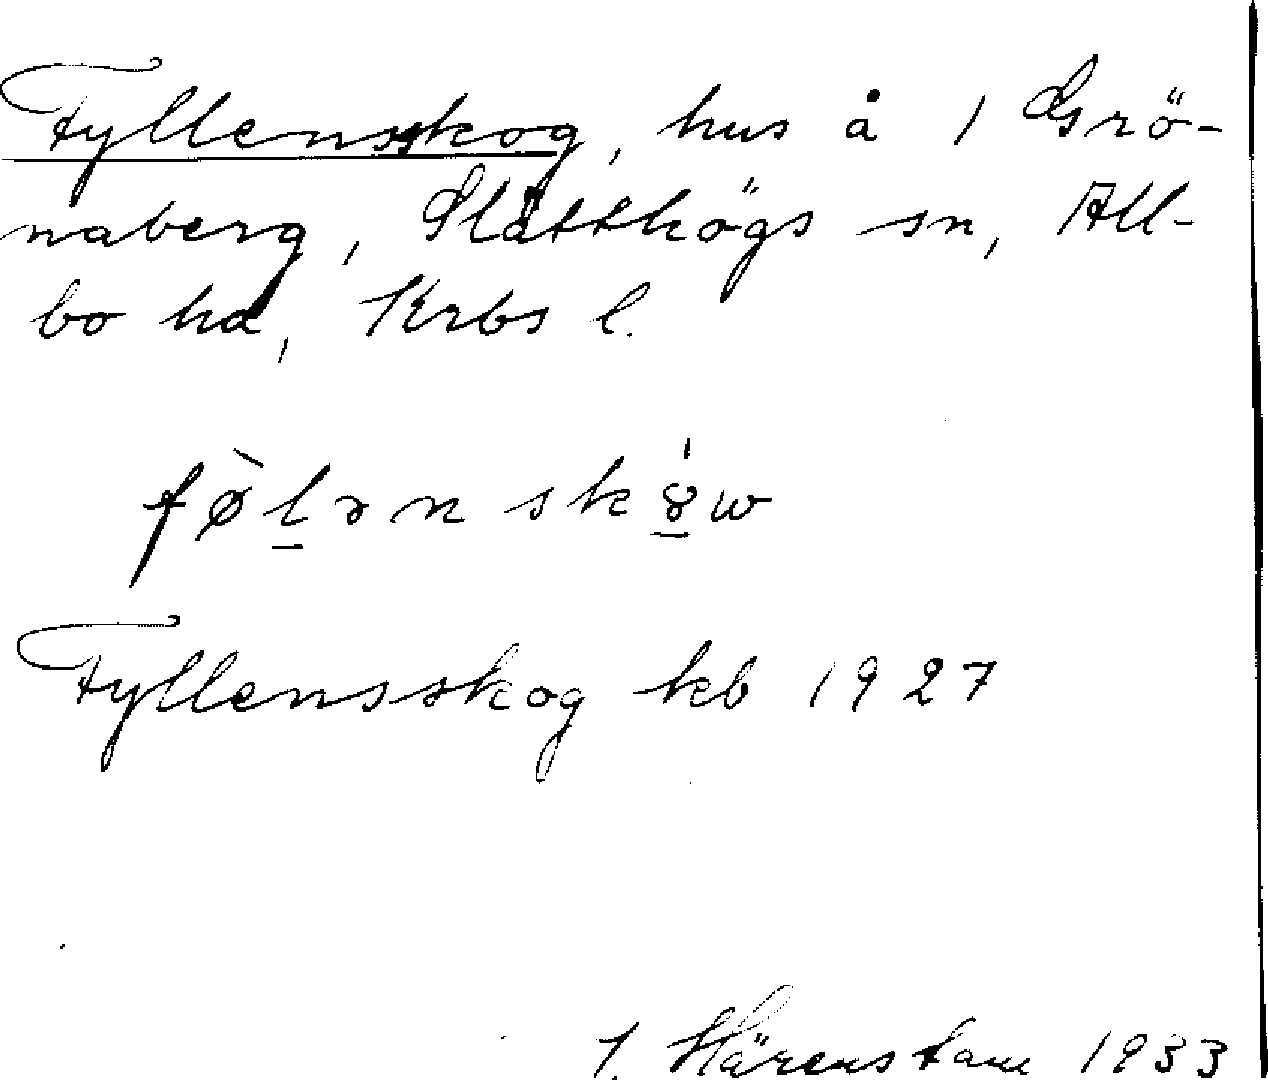 Fyllensskog, hus å 1 Grö-
naberg, Slätthögs sn, All-
bo hd, Krbs l.
fø̀lən skɤ́w
Fyllensskog kb 1927
J. Härenstam 1933